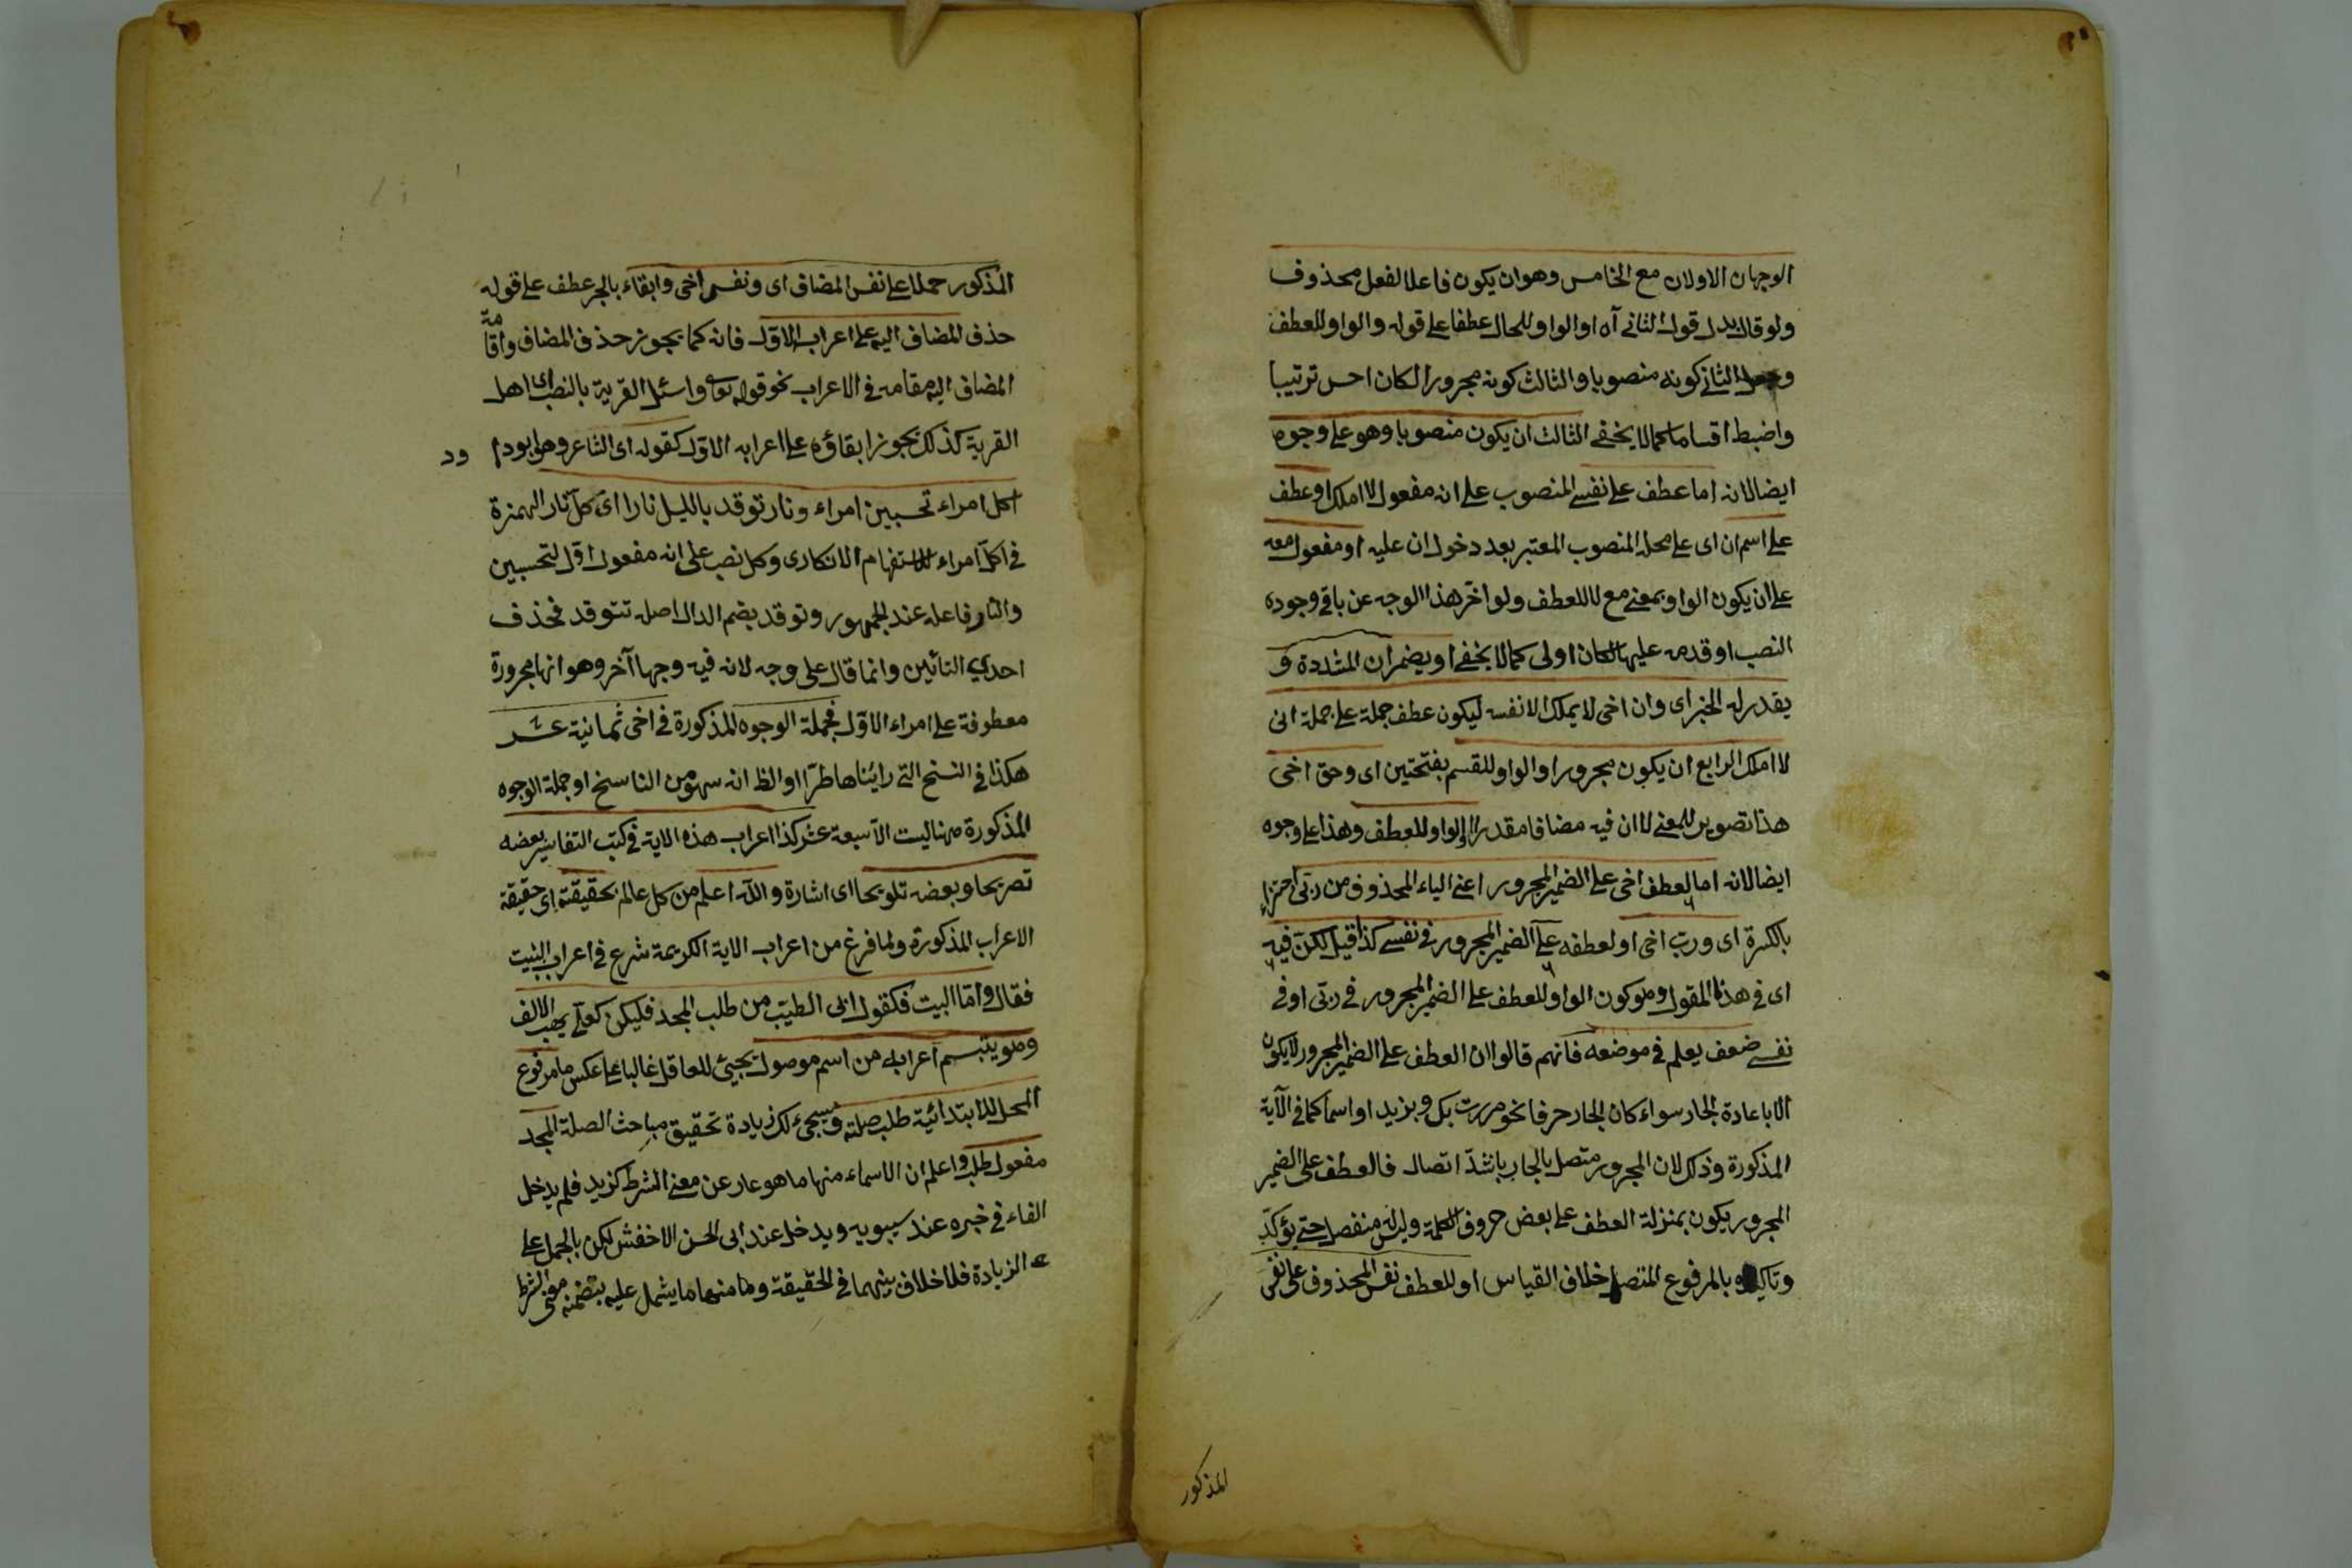 الوجهان الاولان مع الخامس وهو ان يكون فاعلا لفعل محذوف
ولو قال بدل قوله الثاني آه او الواو للحال عطفا على قوله والواو للعطف
الثاني كونه منصوبا والثالث كونه مجرورا لكان احسن ترتيبا
واضبط اقساما كما لا يخفى الثالث ان يكون منصوبا وهو على وجوه
ايضا لانه اما عطف على نفسي المنصوب على انه مفعول لا املك او عطف
على اسم ان اى على محله المنصوب المعتبر بعد دخول ان عليه او مفعول معه
على ان يكون الواو بمعنى مع لا للعطف ولو اخر هذا الوجه عن باقى وجوه
النصب او قدمه عليها لكان اولى كما لا يخفى او يضمر ان المشددة و
يقدر له الخبر اى وان اخى لا يملك الا نفسه ليكون عطف جملة على جملة انى
لا املك الرابع ان يكون مجرورا والواو للقسم بفتحتين اى وحق اخى
هذا تصوير للمعنى لا ان فيه مضافا مقدرا او الواو للعطف وهذا على وجوه
ايضا لانه اما لعطف اخى على الضمير المجرور اعنى الياء المحذوف من ربى
بالكسرة اى ورب اخى او لعطفه على الضمير المجرور فى نفسى كذا قيل لكن فيه
اى فى هذا المقول وهو كون الواو للعطف على الضمير المجرور فى ربى او فى
نفسى ضعف يعلم فى موضعه فانهم قالوا ان العطف على الضمير المجرور لا يكون
الا باعادة الجار سواء كان الجار حرفا نحو مررت بك وبزيد او اسما كما فى الآية
المذكورة وذلك لان المجرور متصل بالجار باشد اتصال فالعطف على الضمير
المجرور يكون بمنزلة العطف على بعض حروف الكلمة وليس له منفصل حتى يؤكد
وتاكيده بالمرفوع المتصل خلاف القياس او للعطف نفس المحذوف على نفسى
المذكور
المذكور حملا على نفس المضاف اى ونفس اخى وابقاء بالجر عطف على قوله
حذف المضاف اليه على اعراب الاول فانه كما يجوز حذف المضاف واقامة
المضاف اليه مقامه فى الاعراب نحو قوله تعالى واسئل القرية بالنصب اى اهل
القرية كذلك يجوز ابقاؤه على اعرابه الاول كقوله اى الشاعر وهو ابو دواد
اكل امراء تحسبين امراء ونار توقد بالليل نارا اى كل نار الهمزة
فى اكل امراء للاستفهام الانكارى وكل نصب على انه مفعول اول لتحسبين
والنار فاعله عند الجمهور وتوقد بضم الدال اصله تتوقد فحذف
احدي التائين وانما قال على وجه لانه فيه وجها آخر وهو انها مجرورة
معطوفة على امراء الاول فجملة الوجوه المذكورة فى اخى ثمانية عشر
هكذا فى النسخ التى رايناها طرا والظ انه سهو من الناسخ او جملة الوجوه
المذكورة ههنا ليست الا سبعة عشر كذا اعراب هذه الاية فى كتب التفاسير بعضه
تصريحا وبعضه تلويحا اى اشارة والله اعلم من كل عالم بحقيقته اى حقيقة
الاعراب المذكورة ولما فرغ من اعراب الاية الكريمة شرع فى اعراب البيت
فقال واما البيت فكقول ابى الطيب من طلب المجد فليكن كعلى يهب الالف
وهو يبتسم اعرابه من اسم موصول يجيئ للعاقل غالبا على عكس ما مرفوع
المحل للابتدائية طلب صلته وسيجىء لك زيادة تحقيق مباحث الصلة المجد
مفعول طلب واعلم ان الاسماء منها ما هو عار عن معنى الشرط كزيد فلم يدخل
الفاء فى خبره عند سيبويه ويدخل عند ابى الحسن الاخفش لكن بالحمل على
الزيادة فلا خلاف بينهما فى الحقيقة وما منها ما يشمل عليه بتضمنه معنى الشرط